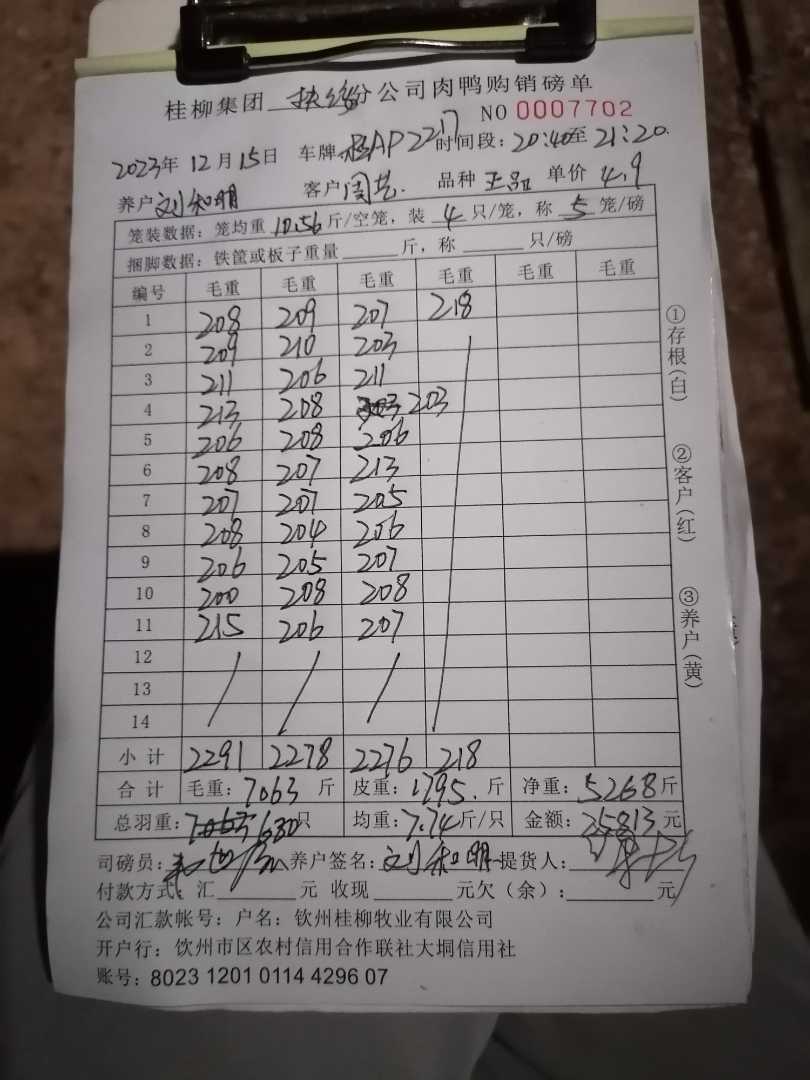 桂柳集团 分公司肉鸭购销磅单
NO 0007702
2023年 12月15日 车牌 AP2217 时间段:20:40至21:20
养户 刘和明 客户 周艺 品种 王品 单价 4.9
笼装数据:笼均重 10.56 斤/空笼,装 4 只/笼,称 5 笼/磅
捆脚数据:铁筐或板子重量 斤,称 只/磅
编号 毛重 毛重 毛重 毛重 毛重 毛重
1 208 209 207 218
2 209 210 203
3 211 206 211
4 213 208 203
5 206 208 206
6 208 207 213
7 207 207 205
8 208 204 206
9 206 205 207
10 200 208 208
11 215 206 207
12
13
14
小计 2291 2278 2276 218
合计 毛重:7063 斤 皮重:1795 斤 净重:5268斤
总羽重:7063 680只 均重:7.74斤/只 金额:25813元
司磅员: 养户签名:刘和明 提货人:
付款方式:汇 元 收现 元欠(余): 元
公司汇款帐号:户名:钦州桂柳牧业有限公司
开户行:钦州市区农村信用合作联社大垌信用社
账号:8023 1201 0114 4296 07
①存根(白)
②客户(红)
③养户(黄)